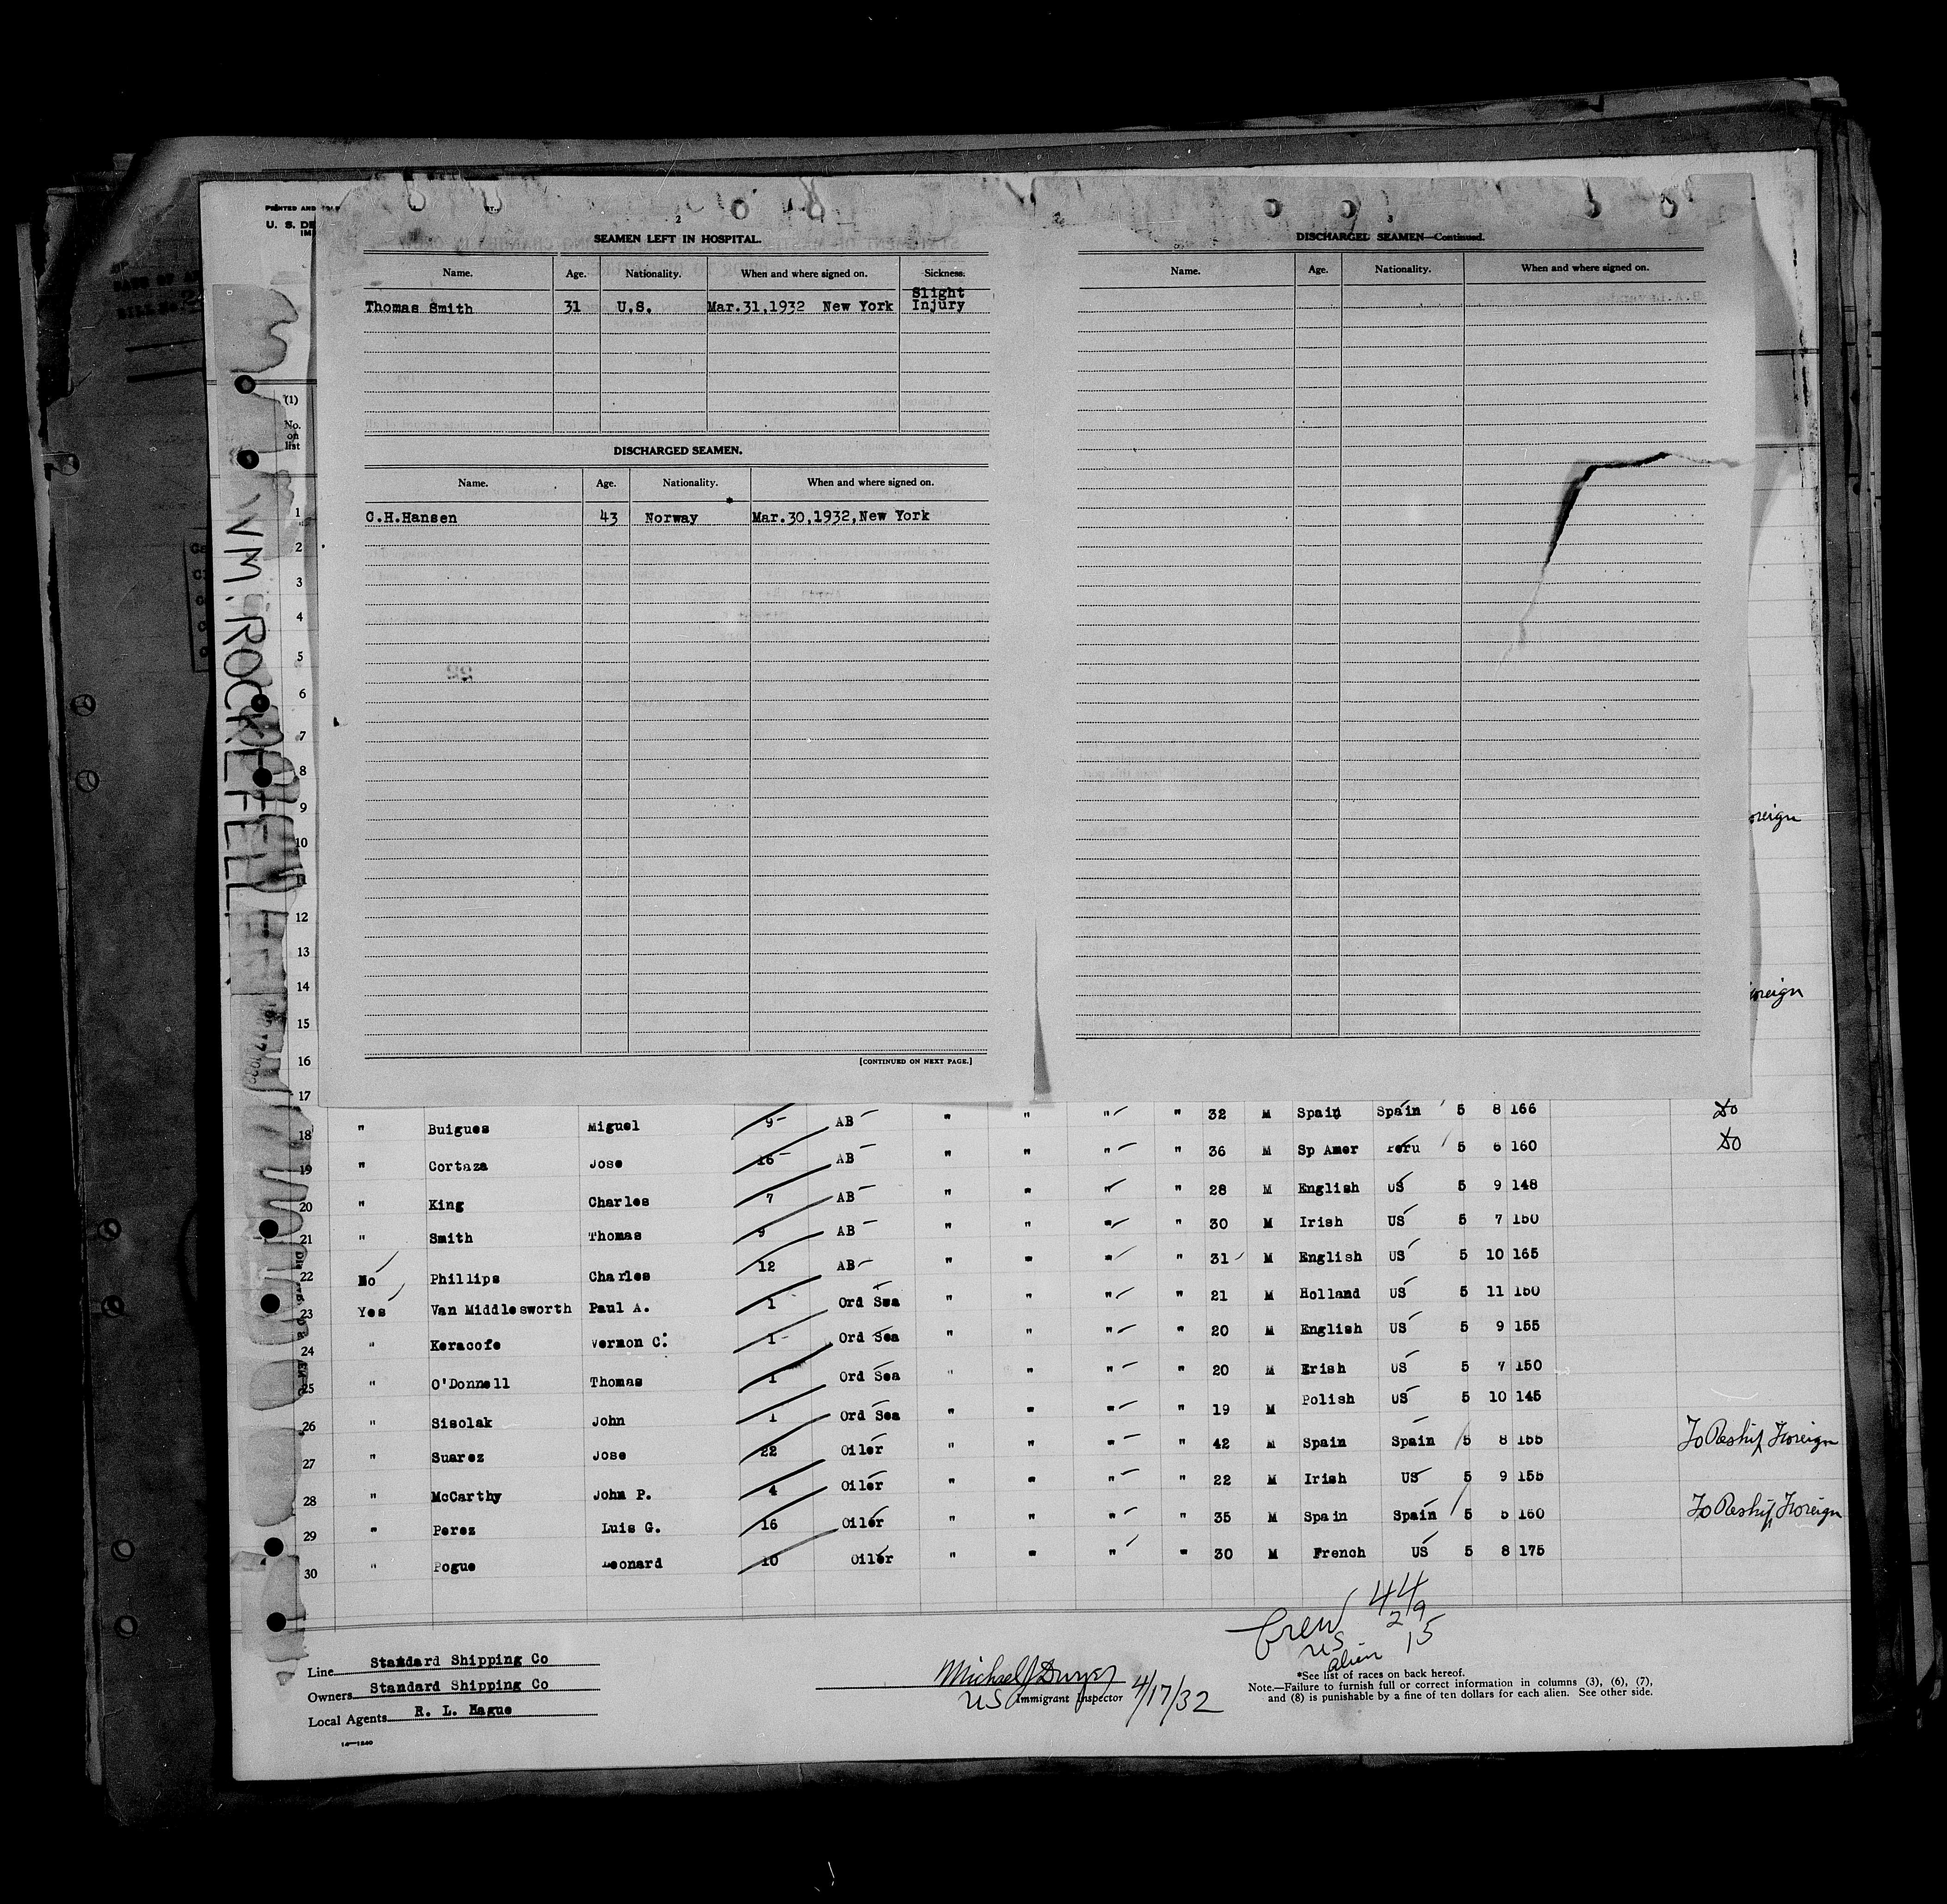 PRINTED AND
U. S. DE
IM
(1)
No.
on
list
WM. ROCKEFELLER
2
SEAMEN LEFT IN HOSPITAL.
Name. Age. Nationality. When and where signed on. Sickness.
Thomas Smith 31 U.S. Mar.31,1932 New York Slight Injury
DISCHARGED SEAMEN.
Name. Age. Nationality. When and where signed on.
C.H.Hansen 43 Norway Mar.30,1932,New York
[CONTINUED ON NEXT PAGE.]
3
DISCHARGED SEAMEN—Continued.
Name. Age. Nationality. When and where signed on.
oreign
oreign
1
2
3
4
5
6
7
8
9
10
11
12
13
14
15
16
17
18 " Buigues Miguel 9 AB " " " " 32 M Spain Spain 5 8 166 Do
19 " Cortaza Jose 16 AB " " " " 36 M Sp Amer Peru 5 6 160 Do
20 " King Charles 7 AB " " " " 28 M English US 5 9 148
21 " Smith Thomas 9 AB " " " " 30 M Irish US 5 7 150
22 No Phillips Charles 12 AB " " " " 31 M English US 5 10 165
23 Yes Van Middlesworth Paul A. 1 Ord Sea " " " " 21 M Holland US 5 11 150
24 " Keracofe Vernon C. 1 Ord Sea " " " " 20 M English US 5 9 155
25 " O'Donnell Thomas 1 Ord Sea " " " " 20 M Erish US 5 7 150
26 " Sisolak John 1 Ord Sea " " " " 19 M Polish US 5 10 145
27 " Suarez Jose 22 Oiler " " " " 42 M Spain Spain 5 8 155 To Reship Foreign
28 " McCarthy John P. 4 Oiler " " " " 22 M Irish US 5 9 155
29 " Perez Luis G. 16 Oiler " " " " 35 M Spain Spain 5 5 160 To Reship Foreign
30 " Pogue Leonard 10 Oiler " " " " 30 M French US 5 8 175
Crew 44
US 29
alien 15
Line Standard Shipping Co
Owners Standard Shipping Co
Local Agents R. L. Hague
14—1240
Michael J Dwyer
US Immigrant Inspector 4/17/32
*See list of races on back hereof.
Note.—Failure to furnish full or correct information in columns (3), (6), (7),
and (8) is punishable by a fine of ten dollars for each alien. See other side.